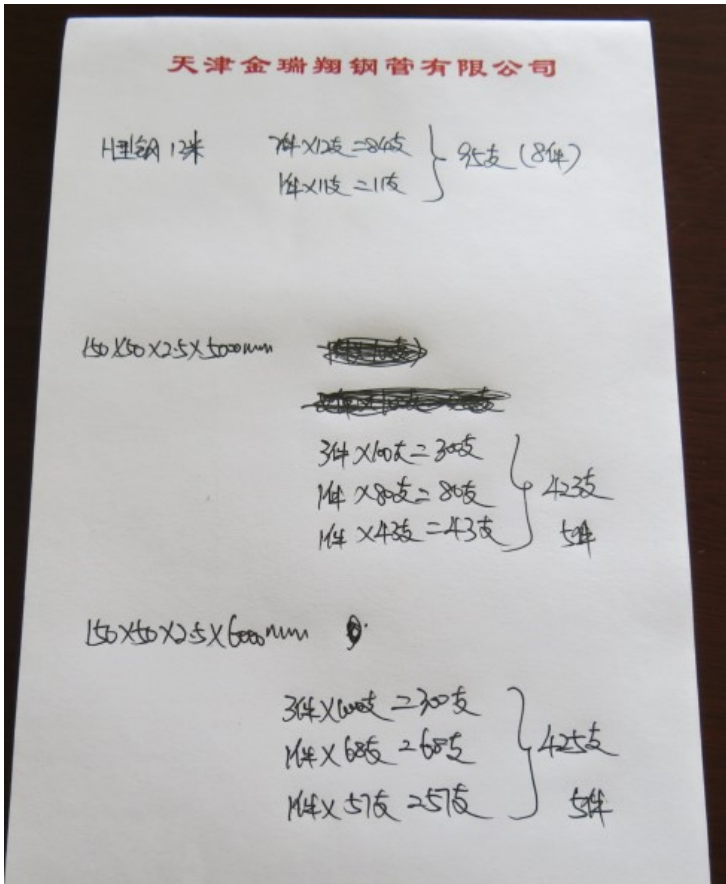 天津金瑞翔钢管有限公司
H型钢 12米 7件×12支=84支 95支（8件）
1件×11支=11支
150×50×2.5×5000mm
3件×100支=300支
1件×80支=80支 423支
1件×43支=43支 5件
150×50×2.5×6000mm
3件×100支=300支
1件×68支=68支 425支
1件×57支=57支 5件